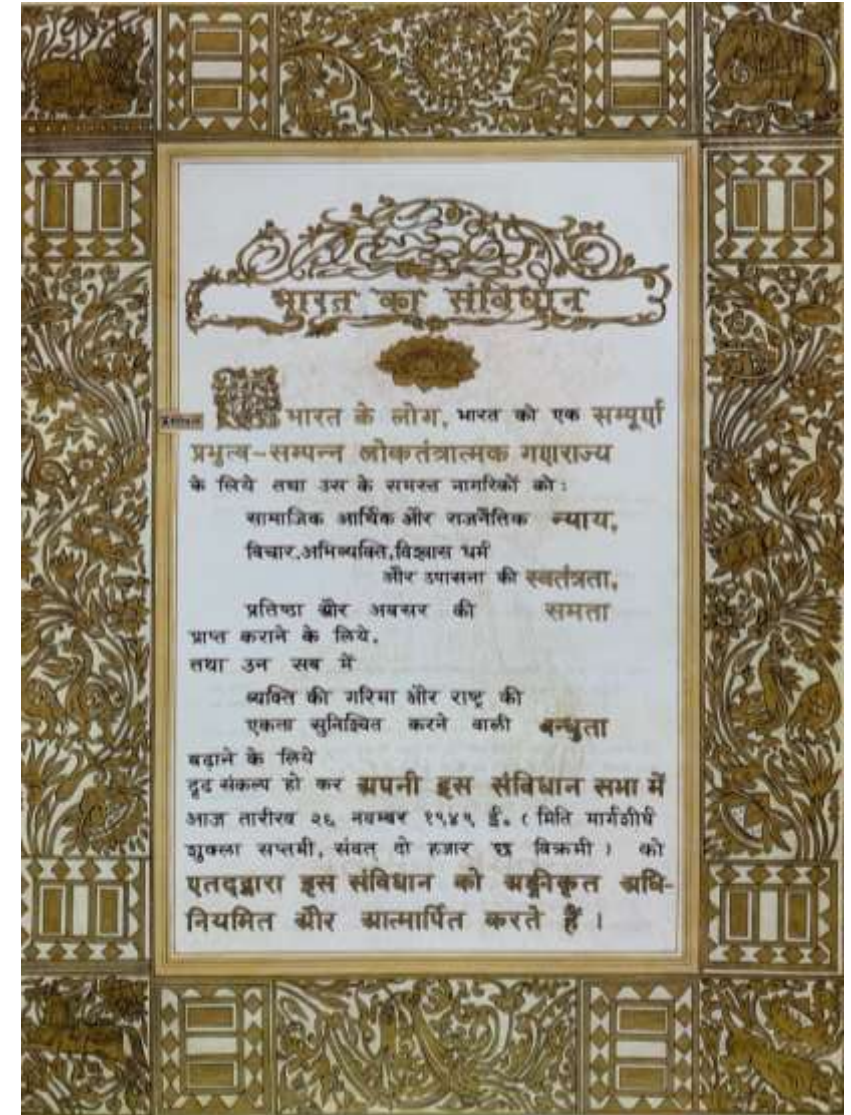 भारत का संविधान
प्रस्तावना
हम भारत के लोग, भारत को एक सम्पूर्ण
प्रभुत्व-सम्पन्न लोकतंत्रात्मक गणराज्य
के लिये तथा उस के समस्त नागरिकों को:
सामाजिक आर्थिक और राजनैतिक न्याय,
विचार,अभिव्यक्ति,विश्वास धर्म
और उपासना की स्वतंत्रता,
प्रतिष्ठा और अवसर की समता
प्राप्त कराने के लिये,
तथा उन सब में
व्यक्ति की गरिमा और राष्ट्र की
एकता सुनिश्चित करने वाली बन्धुता
बढ़ाने के लिये
दृढ संकल्प हो कर अपनी इस संविधान सभा में
आज तारीख २६ नवम्बर १९४९ ई. (मिति मार्गशीर्ष
शुक्ला सप्तमी, संवत् दो हजार छ विक्रमी) को
एतद्द्वारा इस संविधान को अङ्गीकृत अधि-
नियमित और आत्मार्पित करते हैं ।